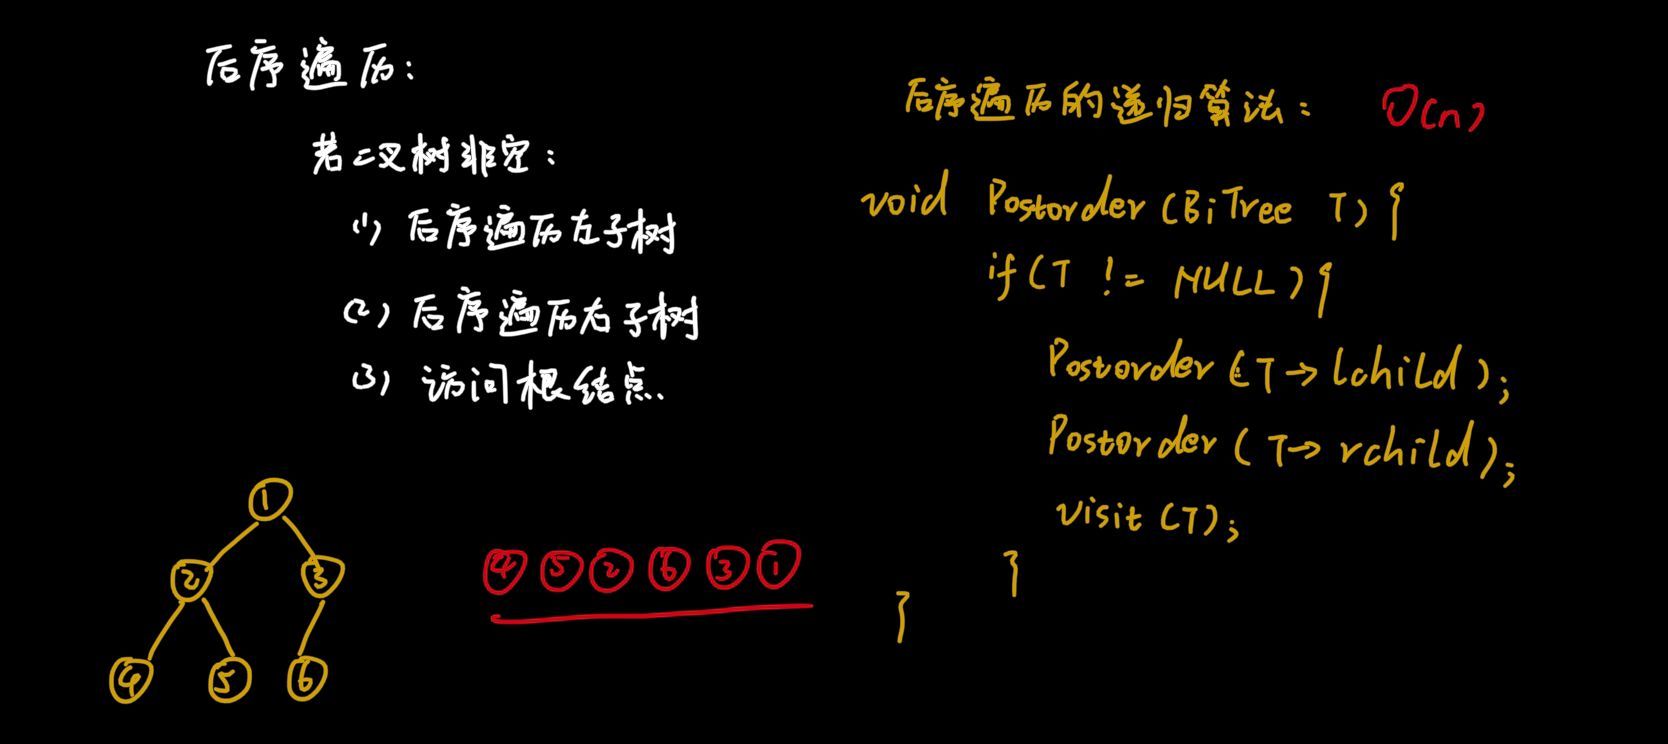 后序遍历:
若二叉树非空:
(1) 后序遍历左子树
(2) 后序遍历右子树
(3) 访问根结点.
1
2 3
4 5 6
4 5 2 6 3 1
后序遍历的递归算法: O(n)
void Postorder (BiTree T) {
if (T != NULL) {
Postorder (T→lchild);
Postorder (T→rchild);
visit (T);
}
}